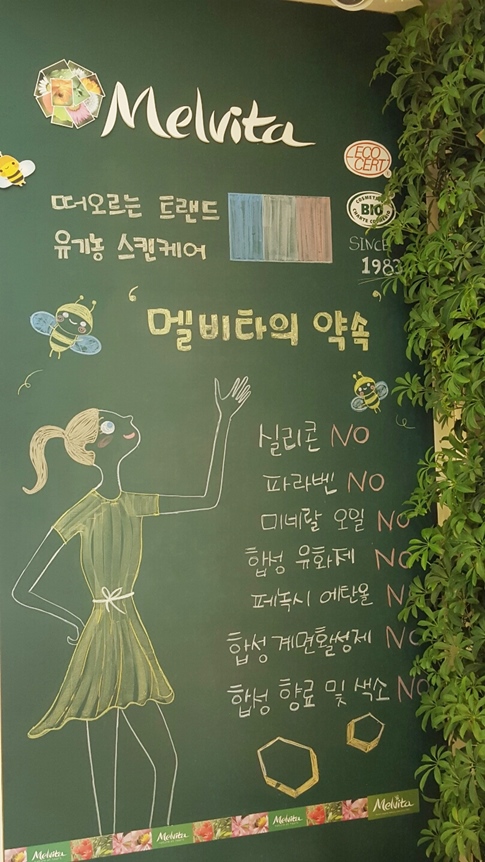 Melvita
ECO
CERT
떠오르는 트랜드
유기농 스켄케어
COSMETIQUE
BIO
SINCE
1983
멜비타의 약속
실리콘 NO
파라벤 NO
미네랄 오일 NO
합성 유화제 NO
페녹시 에탄올 N
합성 계면활성제 NO
합성 향료 및 색소 NO
Melvita
Melvita
Melvita
Melvita